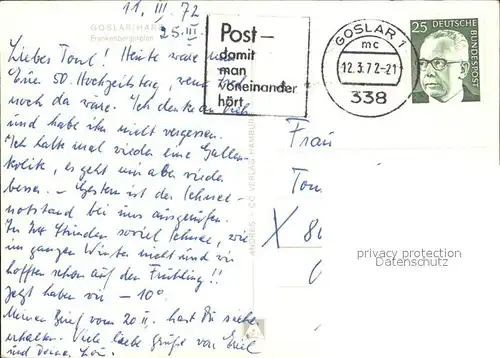 11. III. 72
GOSLAR/HARZ
Frankenbergerplan
25. III.
Liebes Toml! Heute wäre
Eure 50. Hochzeitstag, wenn
noch da wäre. Ich denke an
und habe ihn nicht vergessen.
Ich hatte mal wieder eine Gallen-
kolik, es geht mir aber wieder
besser. – Gestern ist der Schnee-
notstand bei uns ausgerufen.
In Stunden soviel Schnee, wie
im ganzen Winter nicht und wir
hofften schon auf den Frühling!!
Jetzt haben wir – 10°.
Meinen Brief vom 20. II. hast Du
erhalten. Viele liebe Grüße von
und Deiner
Post –
damit
man
voneinander
hört
GOSLAR 1
mc
12.3.72-21
338
25 DEUTSCHE
BUNDESPOST
Frau
X 8
privacy protection
Datenschutz